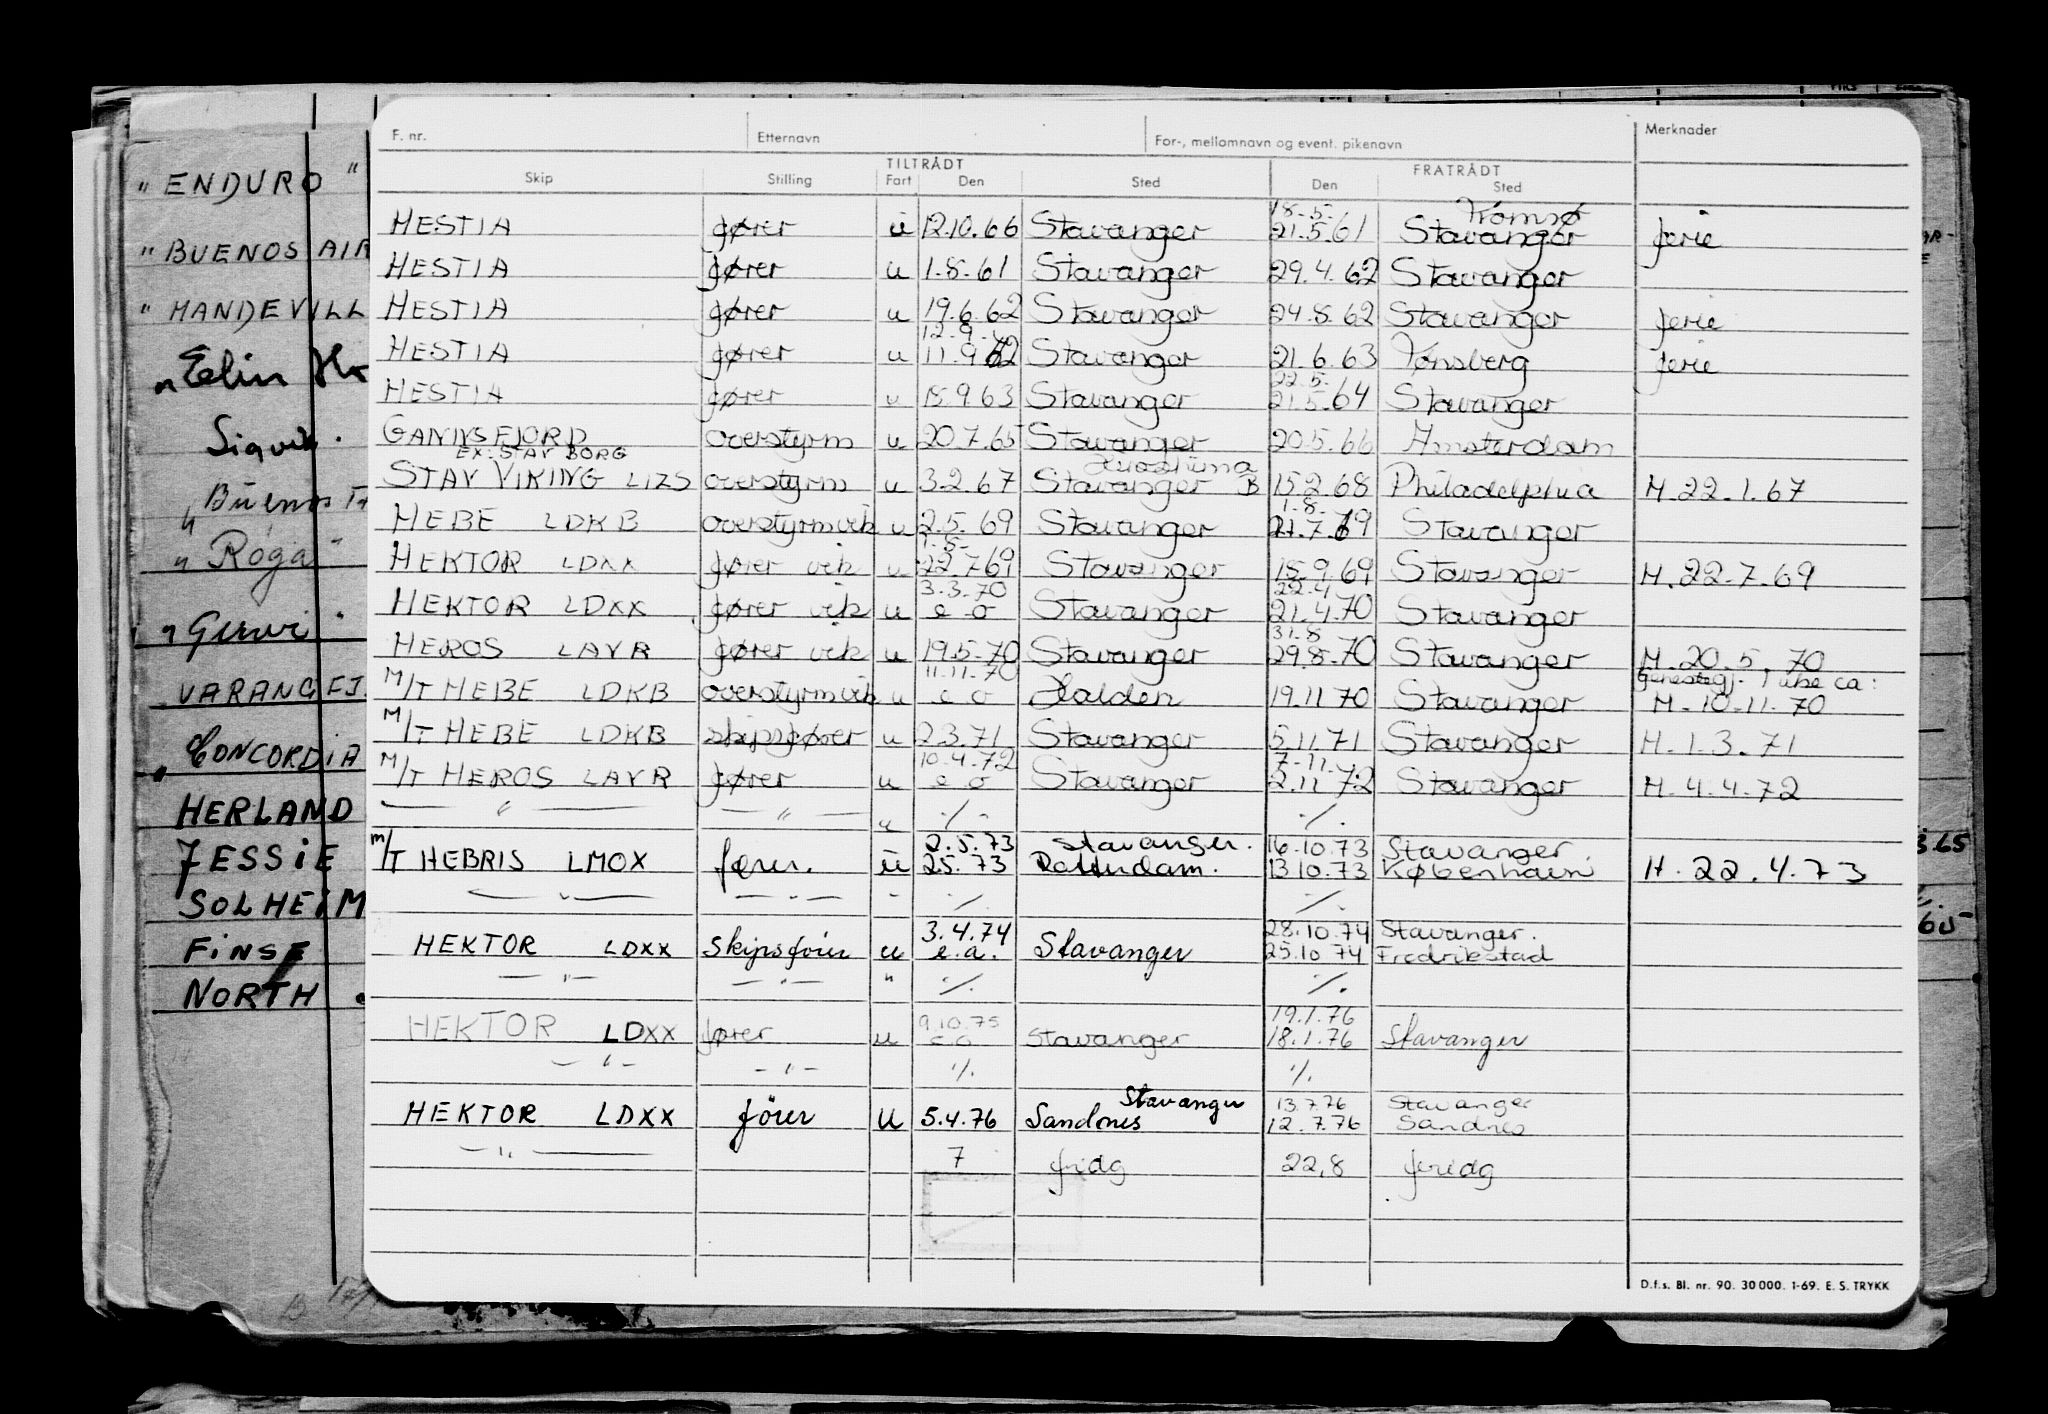 F. nr. Etternavn For-, mellomnavn og event. pikenavn Merknader
TILTRÅDT FRATRÅDT
Skip Stilling Fart Den Sted Den Sted
18-5- Tromsø
HESTIA fører u 12.10.66 Stavanger 21.5.61 Stavanger ferie
HESTIA fører u 1.8.61 Stavanger 29.4.62 Stavanger
HESTIA fører u 19.6.62 Stavanger 24.8.62 Stavanger ferie
12.9.
HESTIA fører u 11.9.62 Stavanger 21.6.63 Tønsberg ferie
22.5.
HESTIA fører u 18.9.63 Stavanger 21.5.64 Stavanger
GANNSFJORD overstyrm u 20.7.65 Stavanger 20.5.66 Amsterdam
EX: STAV BORG
STAV VIKING LIZS overstyrm u 3.2.67 Stavanger B 15.2.68 Philadelphia M.22.1.67
1.8.
HEBE LDKB overstyrm vik u 2.5.69 Stavanger 21.7.69 Stavanger
1.8.
HEKTOR LDXX fører vik u 22.7.69 Stavanger 15.9.69 Stavanger M.22.7.69
3.3.70 22.4
HEKTOR LDXX fører vik u e o Stavanger 21.4.70 Stavanger
31.8
HEROS LAVR fører vik u 19.5.70 Stavanger 29.8.70 Stavanger M.20.5.70
11.11.70
M/T HEBE LDKB overstyrm vik u e o Halden 19.11.70 Stavanger M-10-11.70
M/T HEBE LDKB skipsfører u 2.3.71 Stavanger 5.11.71 Stavanger M.1.3.71
10.4.72 7-11.
M/T HEROS LAVR fører u e o Stavanger 2.11.72 Stavanger M.4.4.72
— " — — " — " ./. ./.
2.5.73 Stavanger. 16.10.73 Stavanger
M/T HEBRIS LMOX fører. u 25.73 Rotterdam. 13.10.73 København M.22.4.73
— " — — " — " ./. ./.
3.4.74 28.10.74 Stavanger.
HEKTOR LDXX Skipsfører u e.o. Stavanger 25.10.74 Fredrikstad
— " — — " — " ./. ./.
9.10.75 19.1.76
HEKTOR LDXX fører u e.o. Stavanger 18.1.76 Stavanger
— " — — " — ./. ./.
Stavanger 13.7.76 Stavanger
HEKTOR LDXX förer u 5.4.76 Sandnes 12.7.76 Sandnes
— " — 7 fridg 22,8 feridg
D.f.s. Bl. nr. 90. 30 000. 1-69. E. S. TRYKK
" ENDURO "
" BUENOS AIR
" MANDEVILL
" Elin Ho
Sigvik.
" Buenos
" Roga "
" Gurvi "
VARANGFJ.
" CONCORDIA
HERLAND
JESSIE
SOLHEIM
FINSE
NORTH
3.65
65